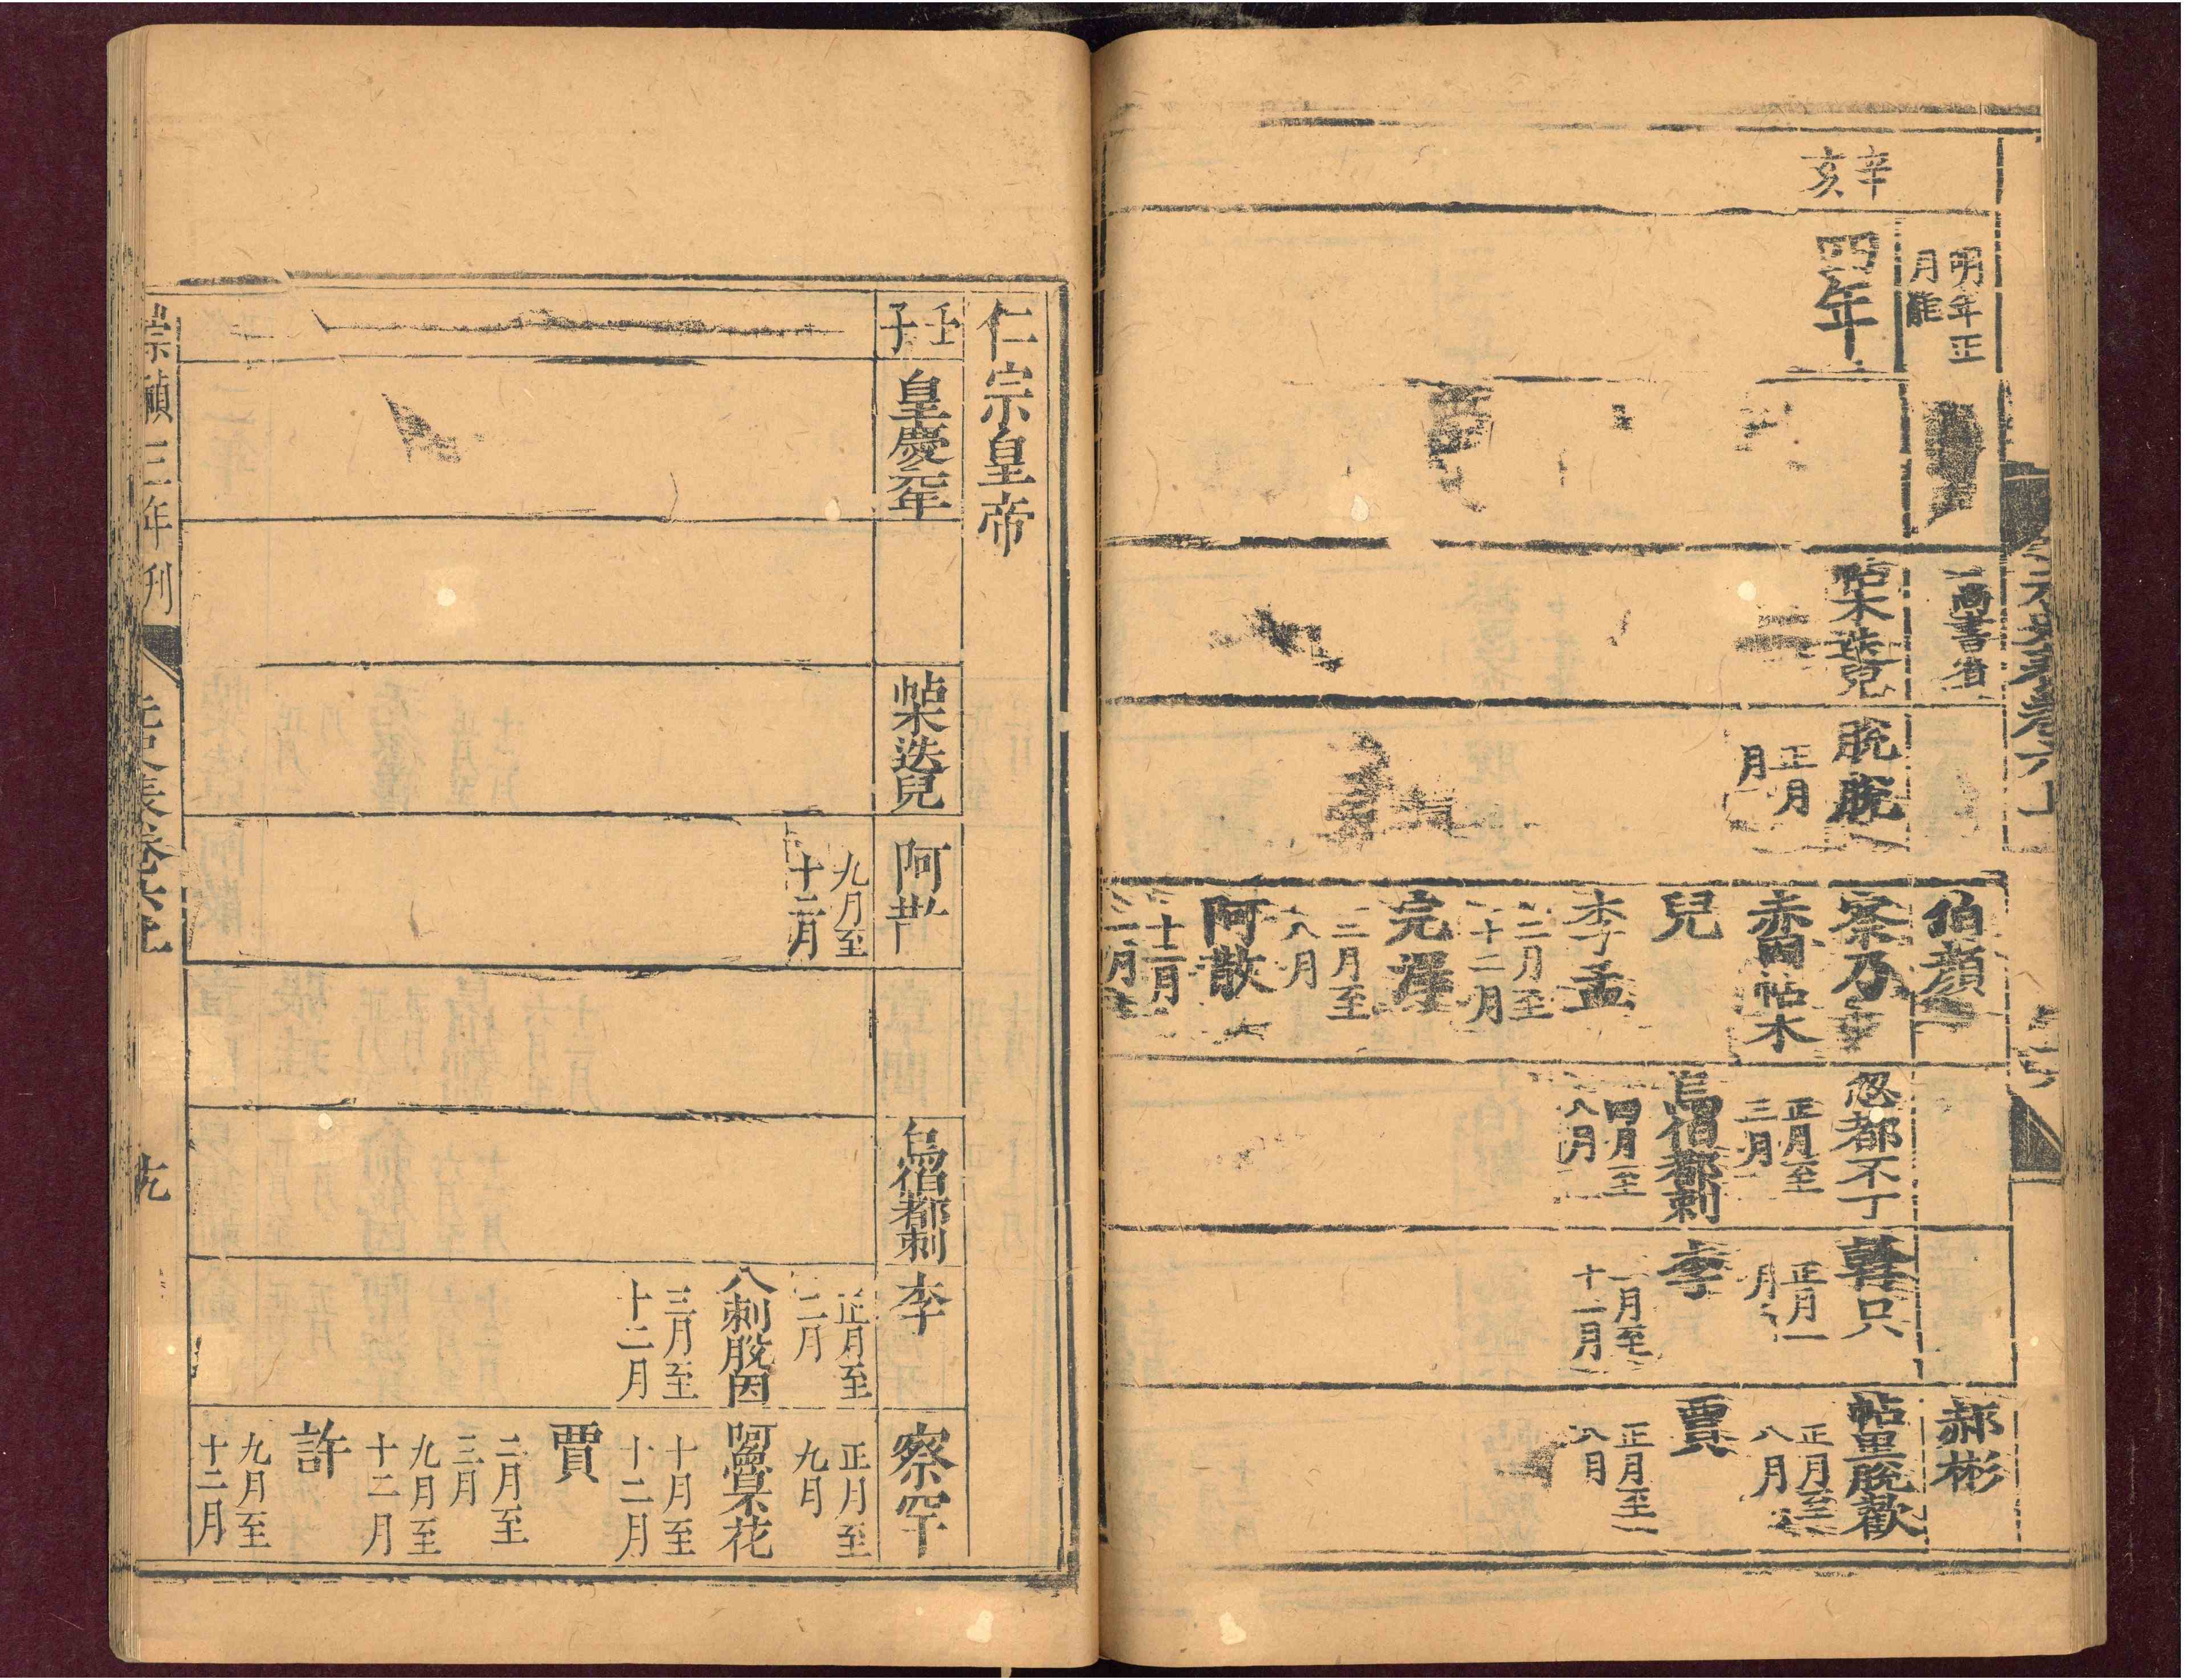 明年正
月罷
尚書省
伯顏
郝彬
辛
亥
四年
帖木迭兒
脫脫
正月
月
察乃
赤因帖木
兒
李孟
二月至
十二月
完澤
二月至
八月
阿散
十二月
忽都不丁
正月至
三月
烏伯都剌
四月至
八月
斡只
正月
月
李
二月至
十二月
帖里脫歡
正月至
八月
賈
正月至
八月
仁宗皇帝
壬
子
皇慶元年
帖木迭兒
阿散
九月至
十二月
烏伯都剌
李
正月至
二月
八剌脫因
三月至
十二月
察罕
正月至
九月
阿魯灰花
十月至
十二月
賈
二月至
三月
九月至
十二月
許
九月至
十二月
崇禎三年刊
元史表卷六上
九